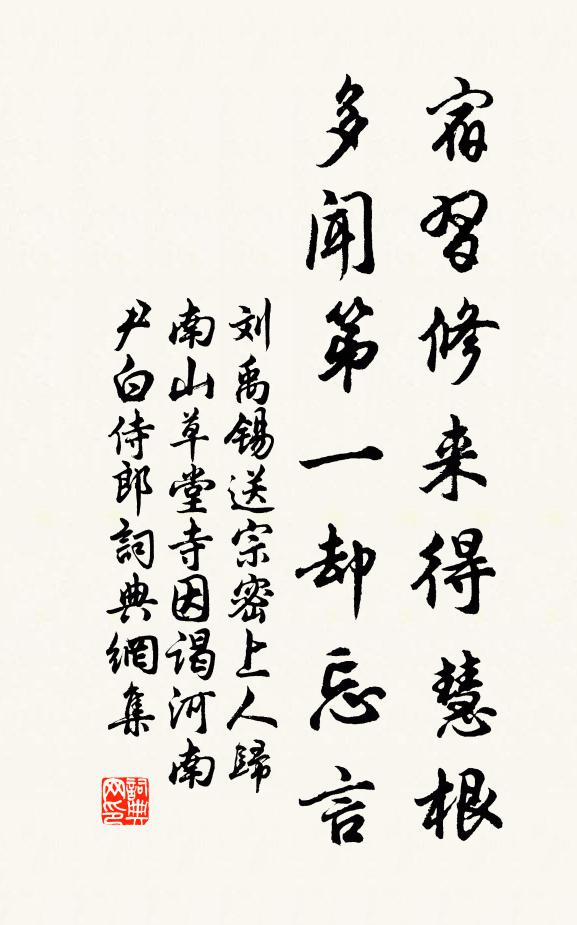 宿習修来得慧根
多聞第一却忘言
刘禹錫送宗密上人歸
南山草堂寺因谒河南
尹白侍郎詞典網集
詞典
网印